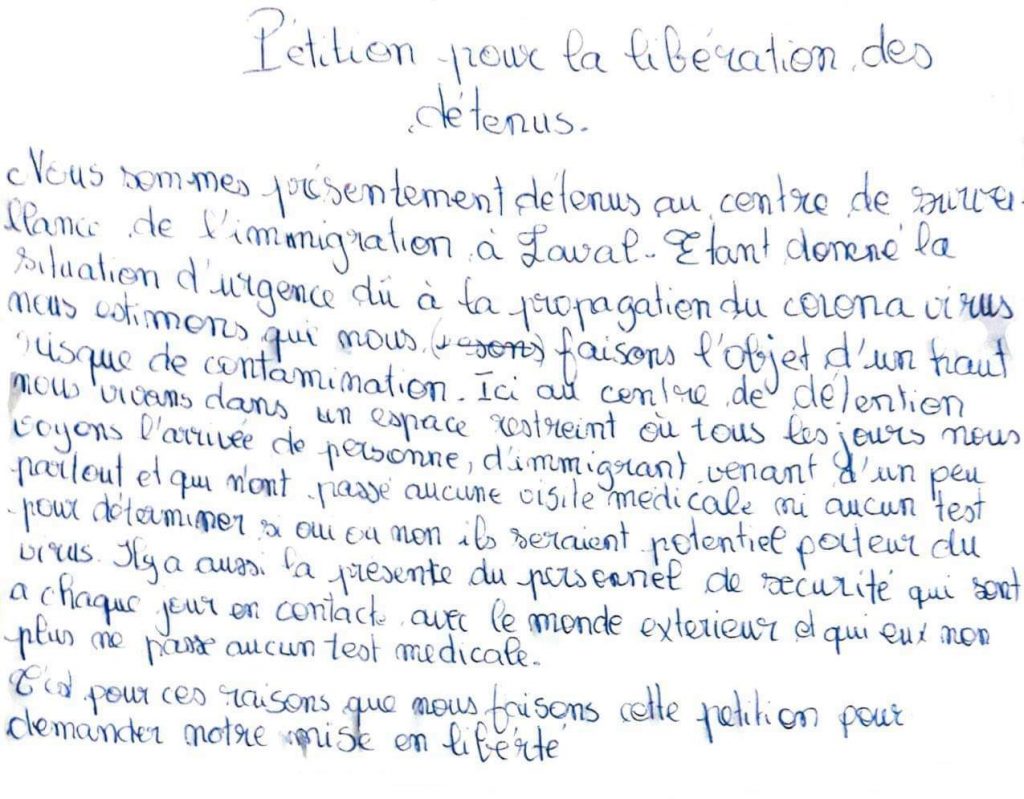 Pétition pour la libération des
détenus.
Nous sommes présentement détenus au centre de survei
llance de l'immigration à Laval. Etant donné la
situation d'urgence dû à la propagation du corona virus
nous estimons qui nous faisons l'objet d'un haut
risque de contamination. Ici au centre de détention
nous vivons dans un espace restreint où tous les jours nous
voyons l'arrivée de personne, d'immigrant venant d'un peu
partout et qui n'ont passé aucune visite medicale ni aucun test
pour déterminer si oui ou non ils seraient potentiel porteur du
virus. Il y a aussi la présente du personnel de securité qui sont
a chaque jour en contact avec le monde exterieur et qui eux non
plus ne passe aucun test medicale.
C'est pour ces raisons que nous faisons cette petition pour
demander notre mise en liberté